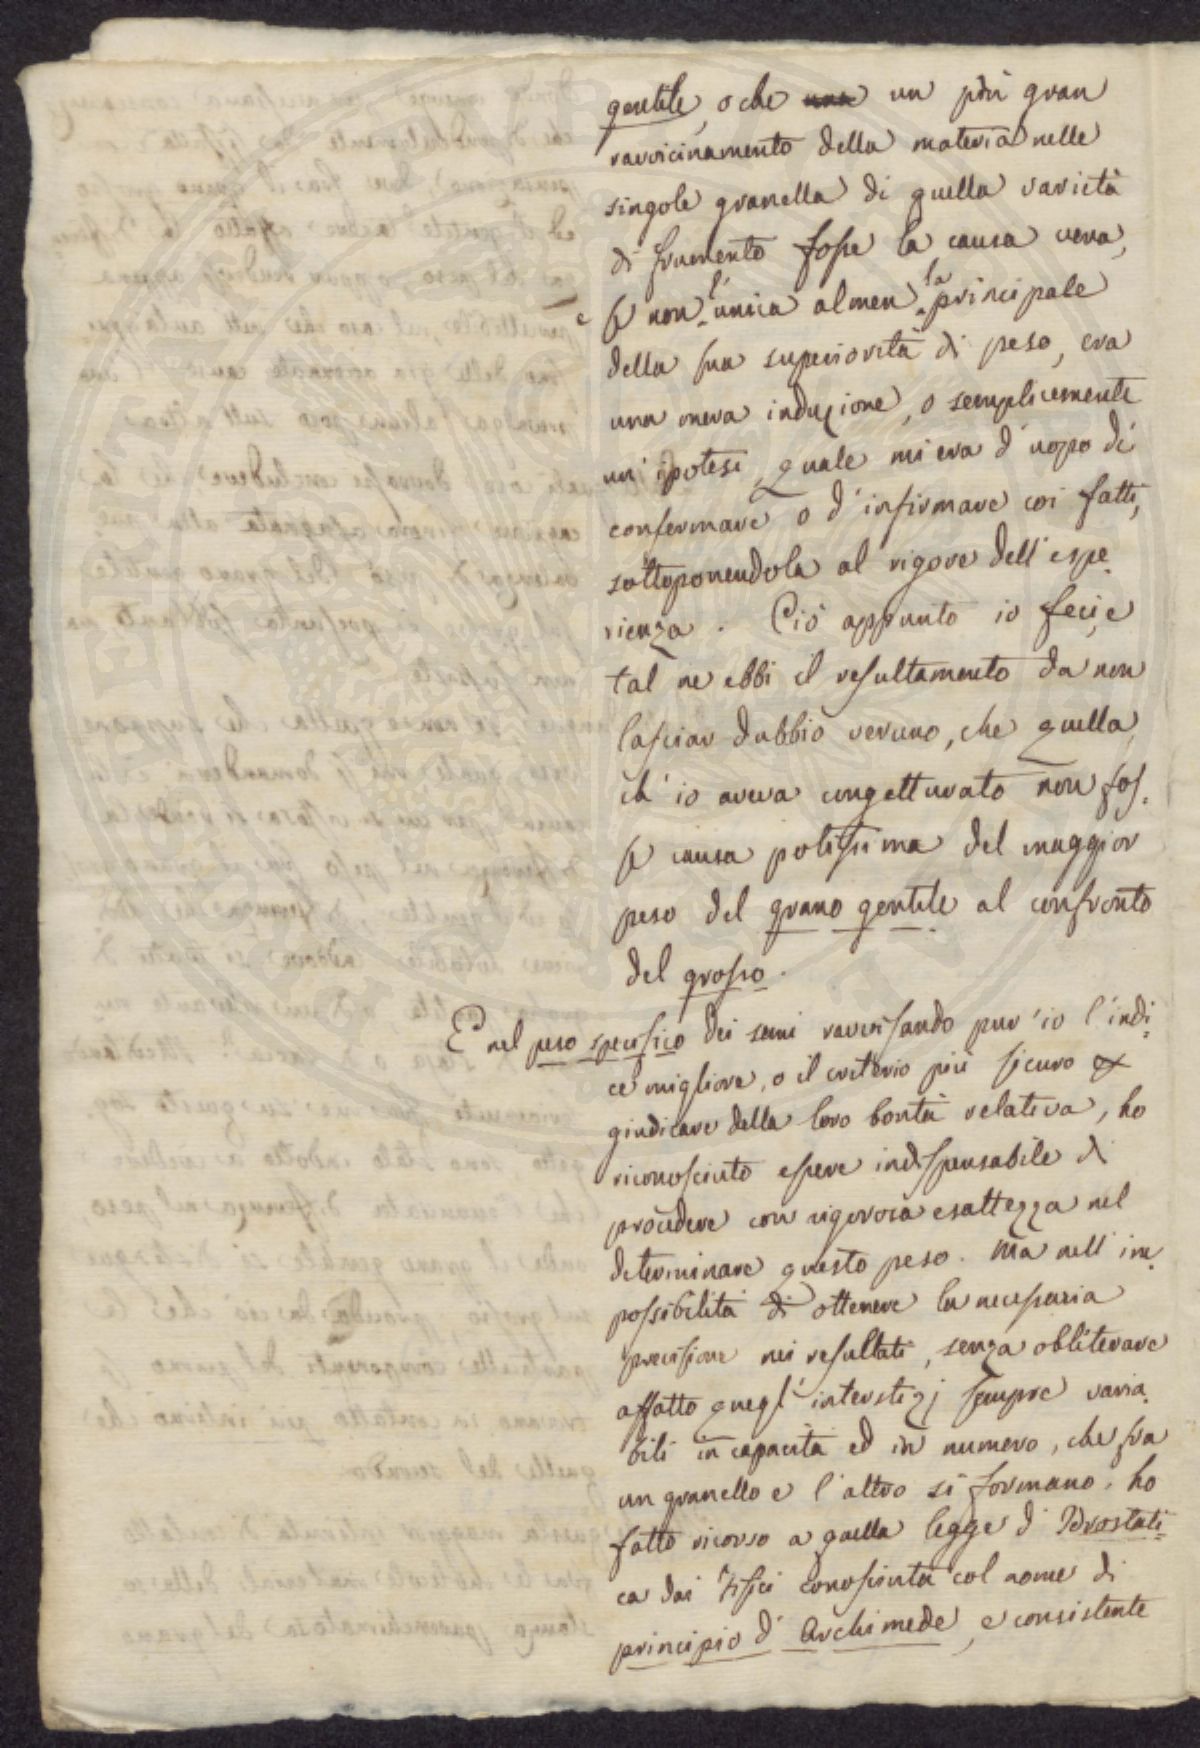 gentile, o che una un più gran
ravvicinamento della materia nelle
singole granella di quella varietà
di frumento fosse la causa vera,
e se non l'unica almen la principale
della sua superiorità di peso, era
una mera induzione, o semplicemente
un'ipotesi, quale mi era d'uopo di
confermare o d'infirmare coi fatti,
sottoponendola al rigore dell'espe-
rienza. Ciò appunto io feci, e
tal ne ebbi il resultamento da non
lasciar dubbio veruno, che quella,
ch'io aveva congetturato non fos-
se causa potissima del maggior
peso del grano gentile al confronto
del grosso.
E nel peso specifico dei semi ravvisando pur'io l'indi-
ce migliore, o il criterio più sicuro a
giudicare della loro bontà relativa, ho
riconosciuto essere indispensabile di
procedere con rigorosa esattezza nel
determinare questo peso. Ma nell'im-
possibilità di ottenere la necessaria
precisione nei resultati, senza obliterare
affatto quegl'interstizj sempre varia-
bili in capacità ed in numero, che fra
un granello e l'altro si formano, ho
fatto ricorso a quella legge d'Idrostati-
ca dai Fisici conosciuta col nome di
principio d'Archimede, e consistente